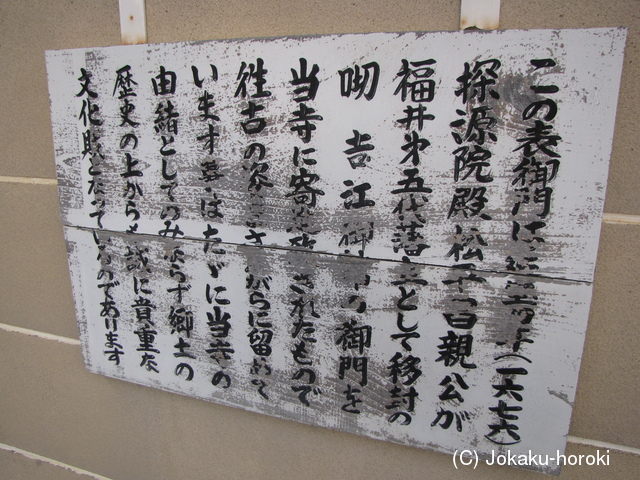 この表御門は延宝四年(一六七六)
探源院殿松平昌親公が
福井第五代藩主として移封の
吻 吉江御 の御門を
当寺に寄 されたもので
往古の姿 さ がらに留めて
います は ただに当寺の
由緒としてのみならず郷土の
歴史の上からも誠に貴重な
文化財となっているのであります
(C) Jokaku-horoki